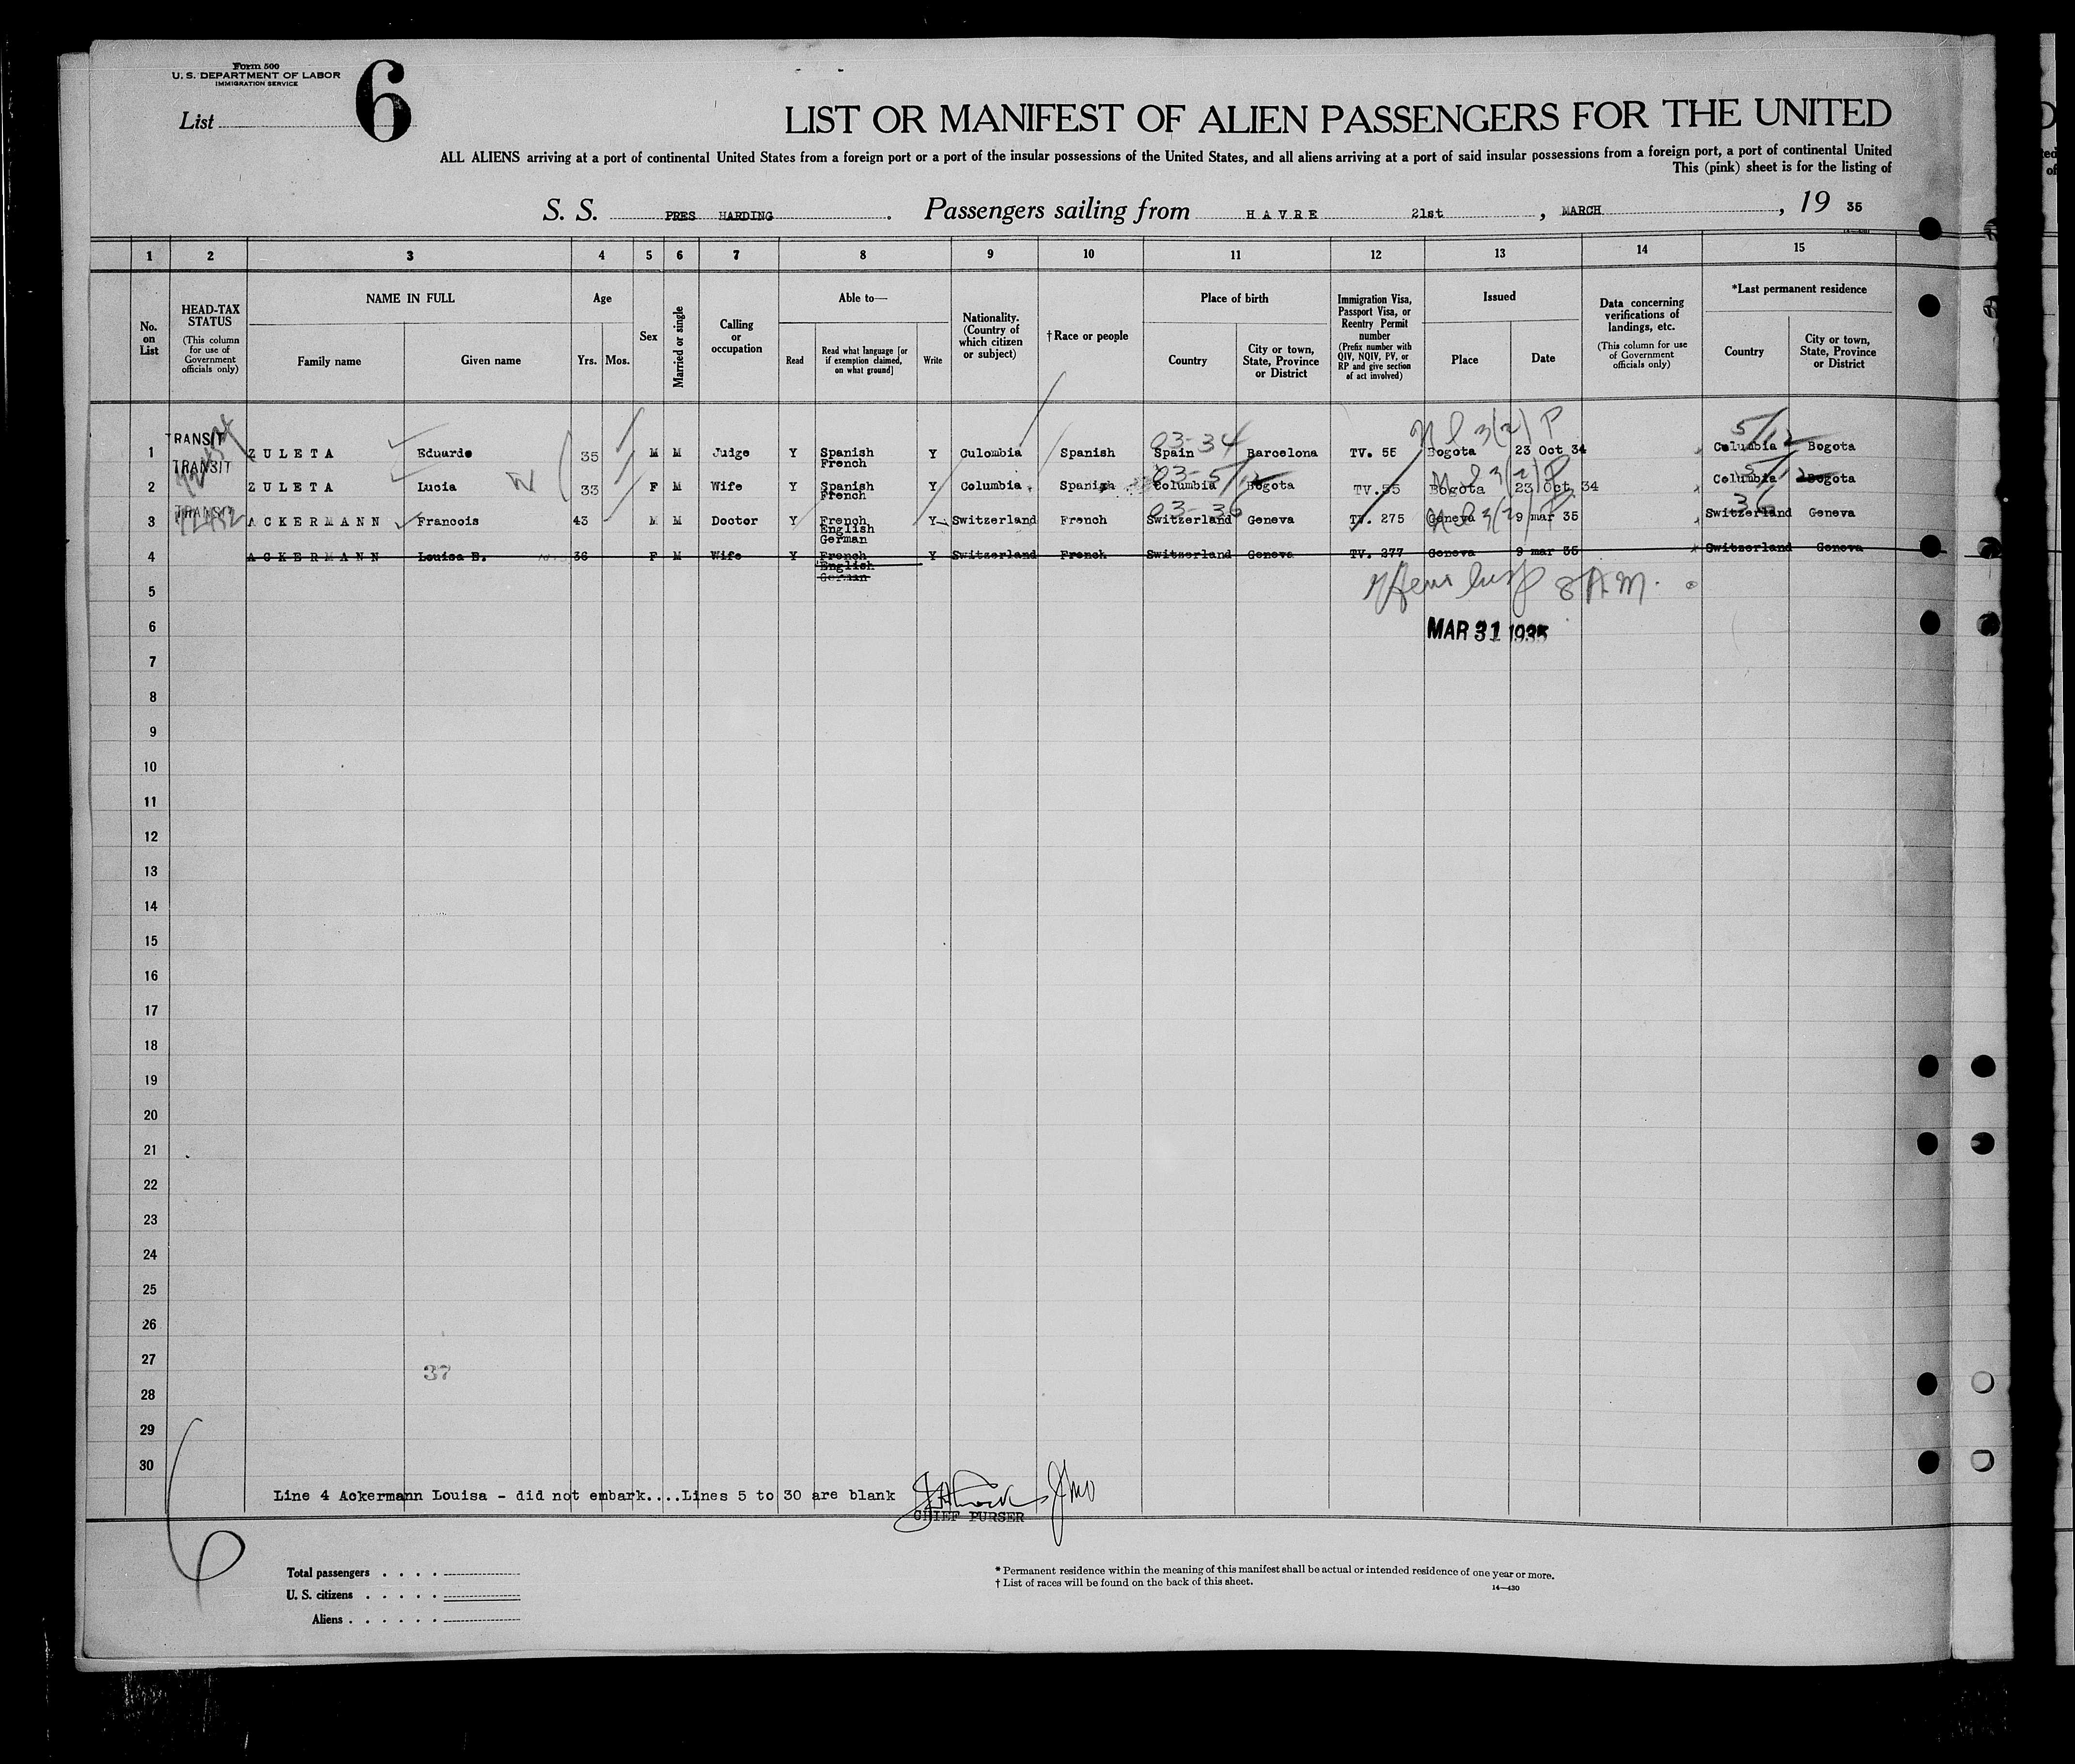 Form 500
U. S. DEPARTMENT OF LABOR
IMMIGRATION SERVICE
List 6
LIST OR MANIFEST OF ALIEN PASSENGERS FOR THE UNITED
ALL ALIENS arriving at a port of continental United States from a foreign port or a port of the insular possessions of the United States, and all aliens arriving at a port of said insular possessions from a foreign port, a port of continental United
This (pink) sheet is for the listing of
S. S. PRES HARDING. Passengers sailing from HAVRE 21st, MARCH, 19 35
1 2 3 4 5 6 7 8 9 10 11 12 13 14 15
No. on List
HEAD-TAX STATUS (This column for use of Government officials only)
NAME IN FULL
Family name Given name
Age
Yrs. Mos.
Sex
Married or single
Calling or occupation
Able to—
Read Read what language [or if exemption claimed, on what ground] Write
Nationality. (Country of which citizen or subject)
† Race or people
Place of birth
Country City or town, State, Province or District
Immigration Visa, Passport Visa, or Reentry Permit number (Prefix number with QIV, NQIV, PV, or RP and give section of act involved)
Issued
Place Date
Data concerning verifications of landings, etc. (This column for use of Government officials only)
*Last permanent residence
Country City or town, State, Province or District
03-34 5/12
1 TRANSIT ZULETA Eduardo 35 M M Judge Y Spanish French Y Culombia Spanish Spain Barcelona TV. 55 Bogota 23 Oct 34 Columbia Bogota
03-5/12 5/12
2 TRANSIT ZULETA Lucia 33 F M Wife Y Spanish French Y Columbia Spanish Columbia Bogota TV.55 Bogota 23 Oct 34 Columbia Bogota
03-36 36
3 TRANSIT ACKERMANN Francois 43 M M Doctor Y French English German Y Switzerland French Switzerland Geneva TV. 275 Geneva 9 mar 35 Switzerland Geneva
4 ACKERMANN Louisa B. 36 F M Wife Y French English German Y Switzerland French Switzerland Geneva TV. 277 Geneva 9 mar 35 Switzerland Geneva
5
6 MAR 31 1935
7
8
9
10
11
12
13
14
15
16
17
18
19
20
21
22
23
24
25
26
27
37
28
29
30
Line 4 Ackermann Louisa - did not embark....Lines 5 to 30 are blank
CHIEF PURSER
6
Total passengers . . . .
U. S. citizens . . . . .
Aliens . . . . . .
* Permanent residence within the meaning of this manifest shall be actual or intended residence of one year or more.
† List of races will be found on the back of this sheet.
14—430